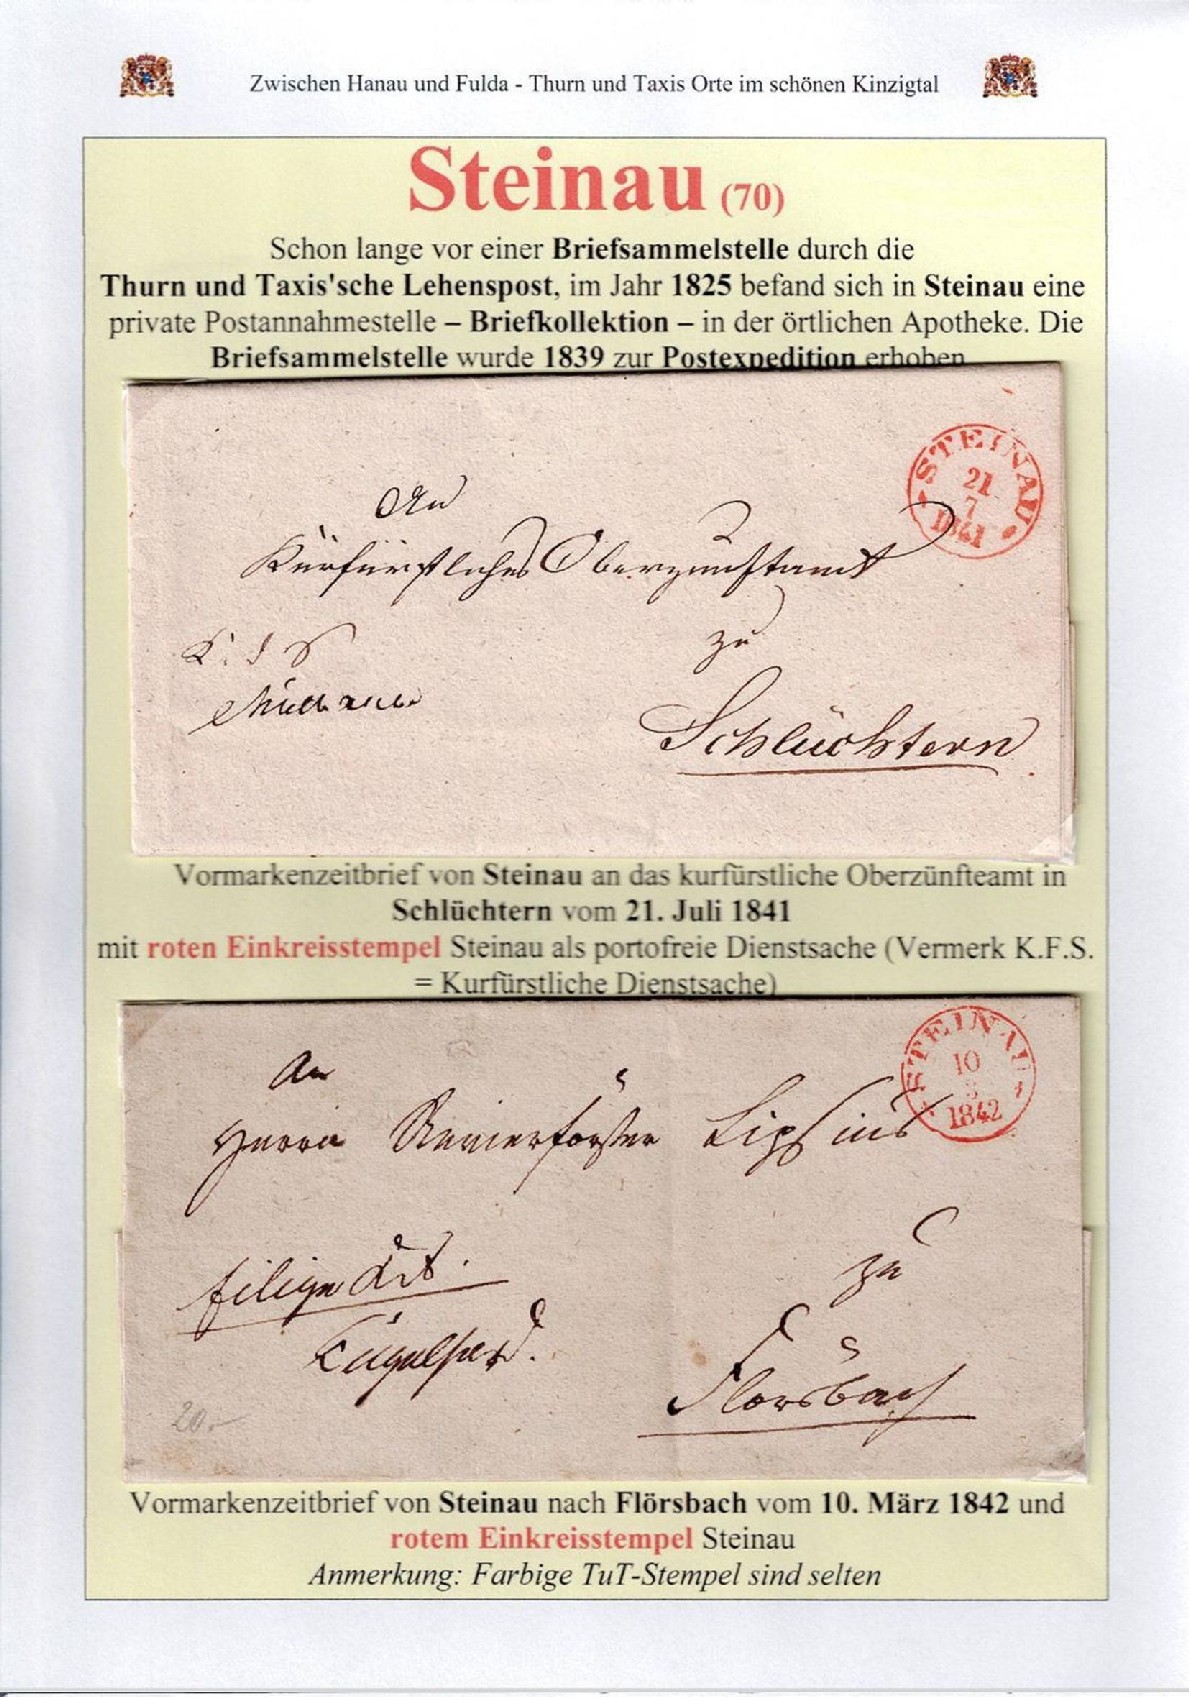 Zwischen Hanau und Fulda - Thurn und Taxis Orte im schönen Kinzigtal
Steinau (70)
Schon lange vor einer Briefsammelstelle durch die
Thurn und Taxis'sche Lehenspost, im Jahr 1825 befand sich in Steinau eine
private Postannahmestelle – Briefkollektion – in der örtlichen Apotheke. Die
Briefsammelstelle wurde 1839 zur Postexpedition erhoben
STEINAU
21
7
1841
An
Kurfürstliches Oberzunftamt
zu
K.
Schlüchtern
Vormarkenzeitbrief von Steinau an das kurfürstliche Oberzünfteamt in
Schlüchtern vom 21. Juli 1841
mit roten Einkreisstempel Steinau als portofreie Dienstsache (Vermerk K.F.S.
= Kurfürstliche Dienstsache)
STEINAU
10
3
1842
An
Herrn Revierförster Lipsius
zu
Flörsbach
20.-
Vormarkenzeitbrief von Steinau nach Flörsbach vom 10. März 1842 und
rotem Einkreisstempel Steinau
Anmerkung: Farbige TuT-Stempel sind selten